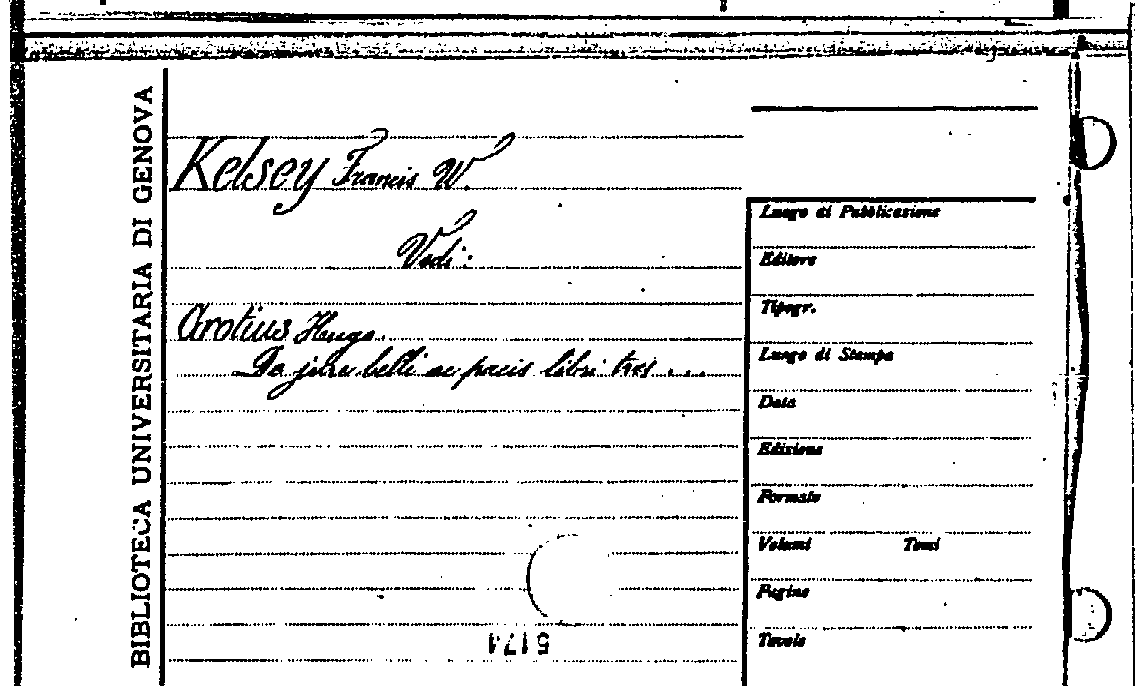 BIBLIOTECA UNIVERSITARIA DI GENOVA
Kelsey Francis W.
Vedi:
Grotius Hugo.
De jure belli ac pacis libri tres ...
Luogo di Pubblicazione
Editore
Tipogr.
Luogo di Stampa
Data
Edizione
Formato
Volumi Tomi
Pagine
Tavole
5174